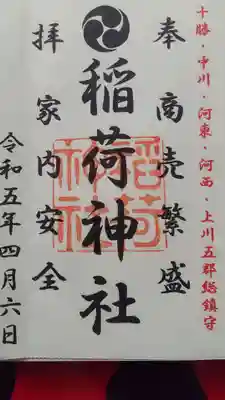 十勝・中川・河東・河西・上川五郡総鎮守
奉 商売繁盛
稲荷神社
稲荷神社
拝 家内安全
令和五年四月六日